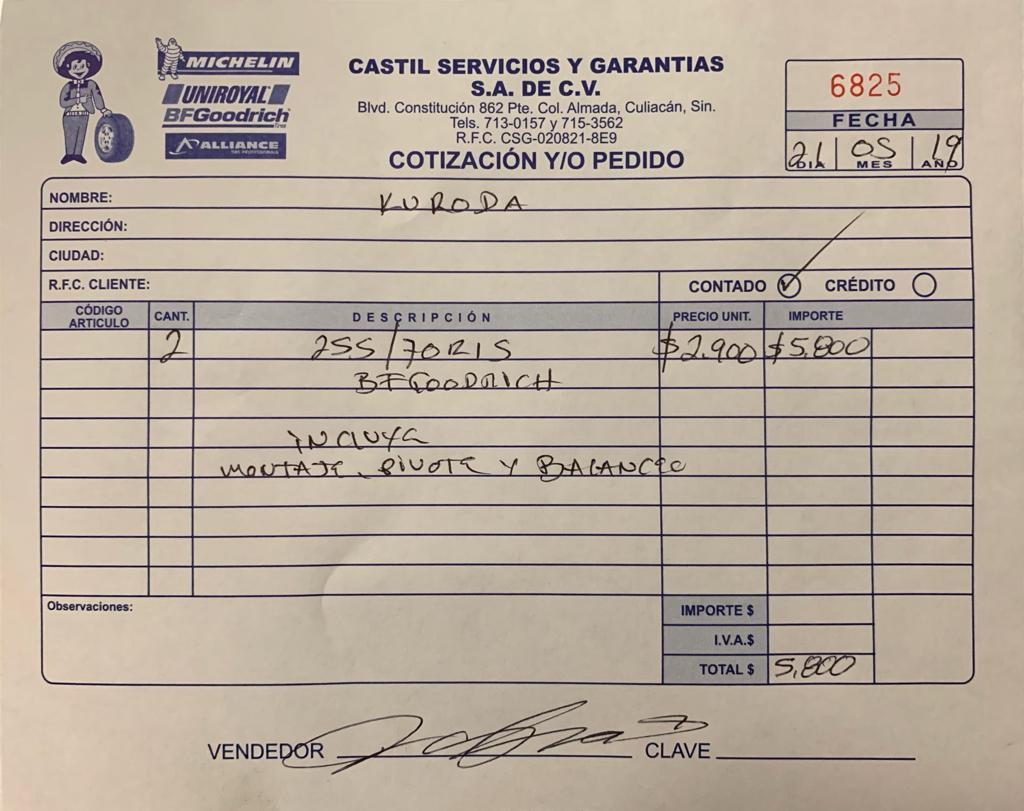 MICHELIN
UNIROYAL
BFGoodrich
ALLIANCE
CASTIL SERVICIOS Y GARANTIAS
S.A. DE C.V.
Blvd. Constitución 862 Pte. Col. Almada, Culiacán, Sin.
Tels. 713-0157 y 715-3562
R.F.C. CSG-020821-8E9
COTIZACIÓN Y/O PEDIDO
6825
FECHA
21 05 19
DIA MES AÑO
NOMBRE: KURODA
DIRECCIÓN:
CIUDAD:
R.F.C. CLIENTE: CONTADO ✓ CRÉDITO
CÓDIGO ARTICULO CANT. DESCRIPCIÓN PRECIO UNIT. IMPORTE
2 255/70R15 $2.900 $5.800
BFGOODRICH
INCLUYE
MONTAJE, PIVOTE Y BALANCEO
Observaciones:
IMPORTE $
I.V.A.$
TOTAL $ 5,800
VENDEDOR CLAVE